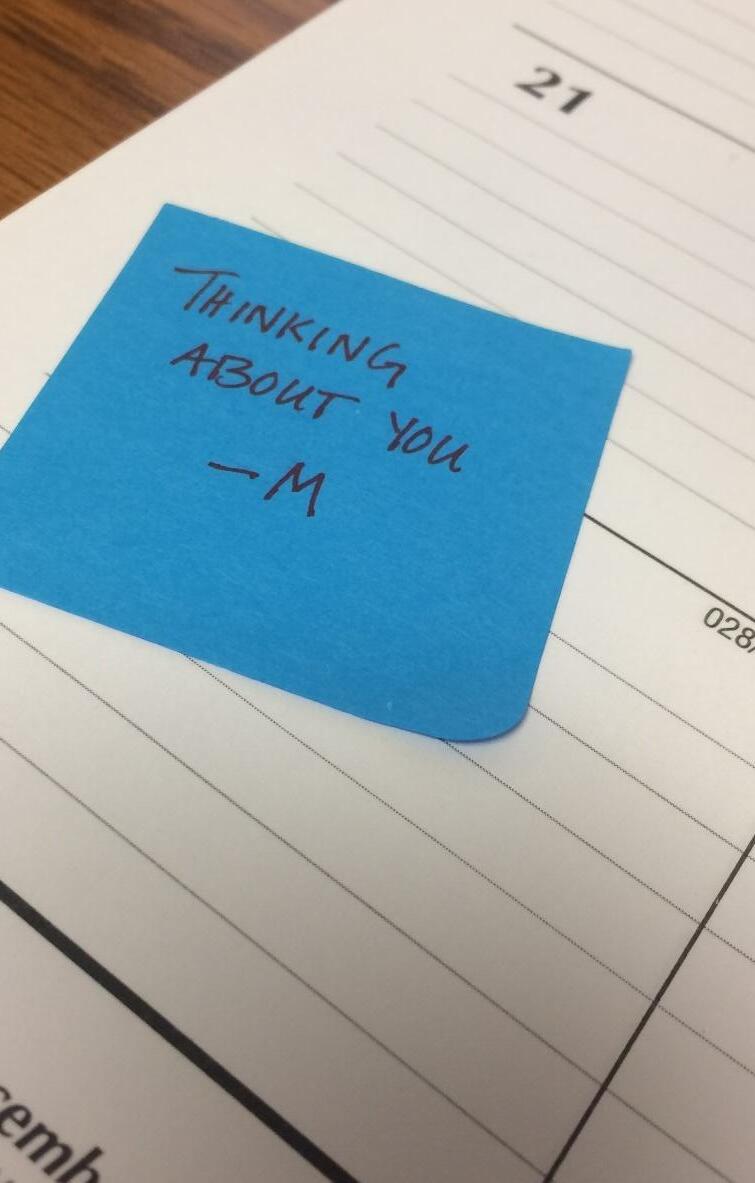 21
THINKING
ABOUT YOU
- M
028/
cemb